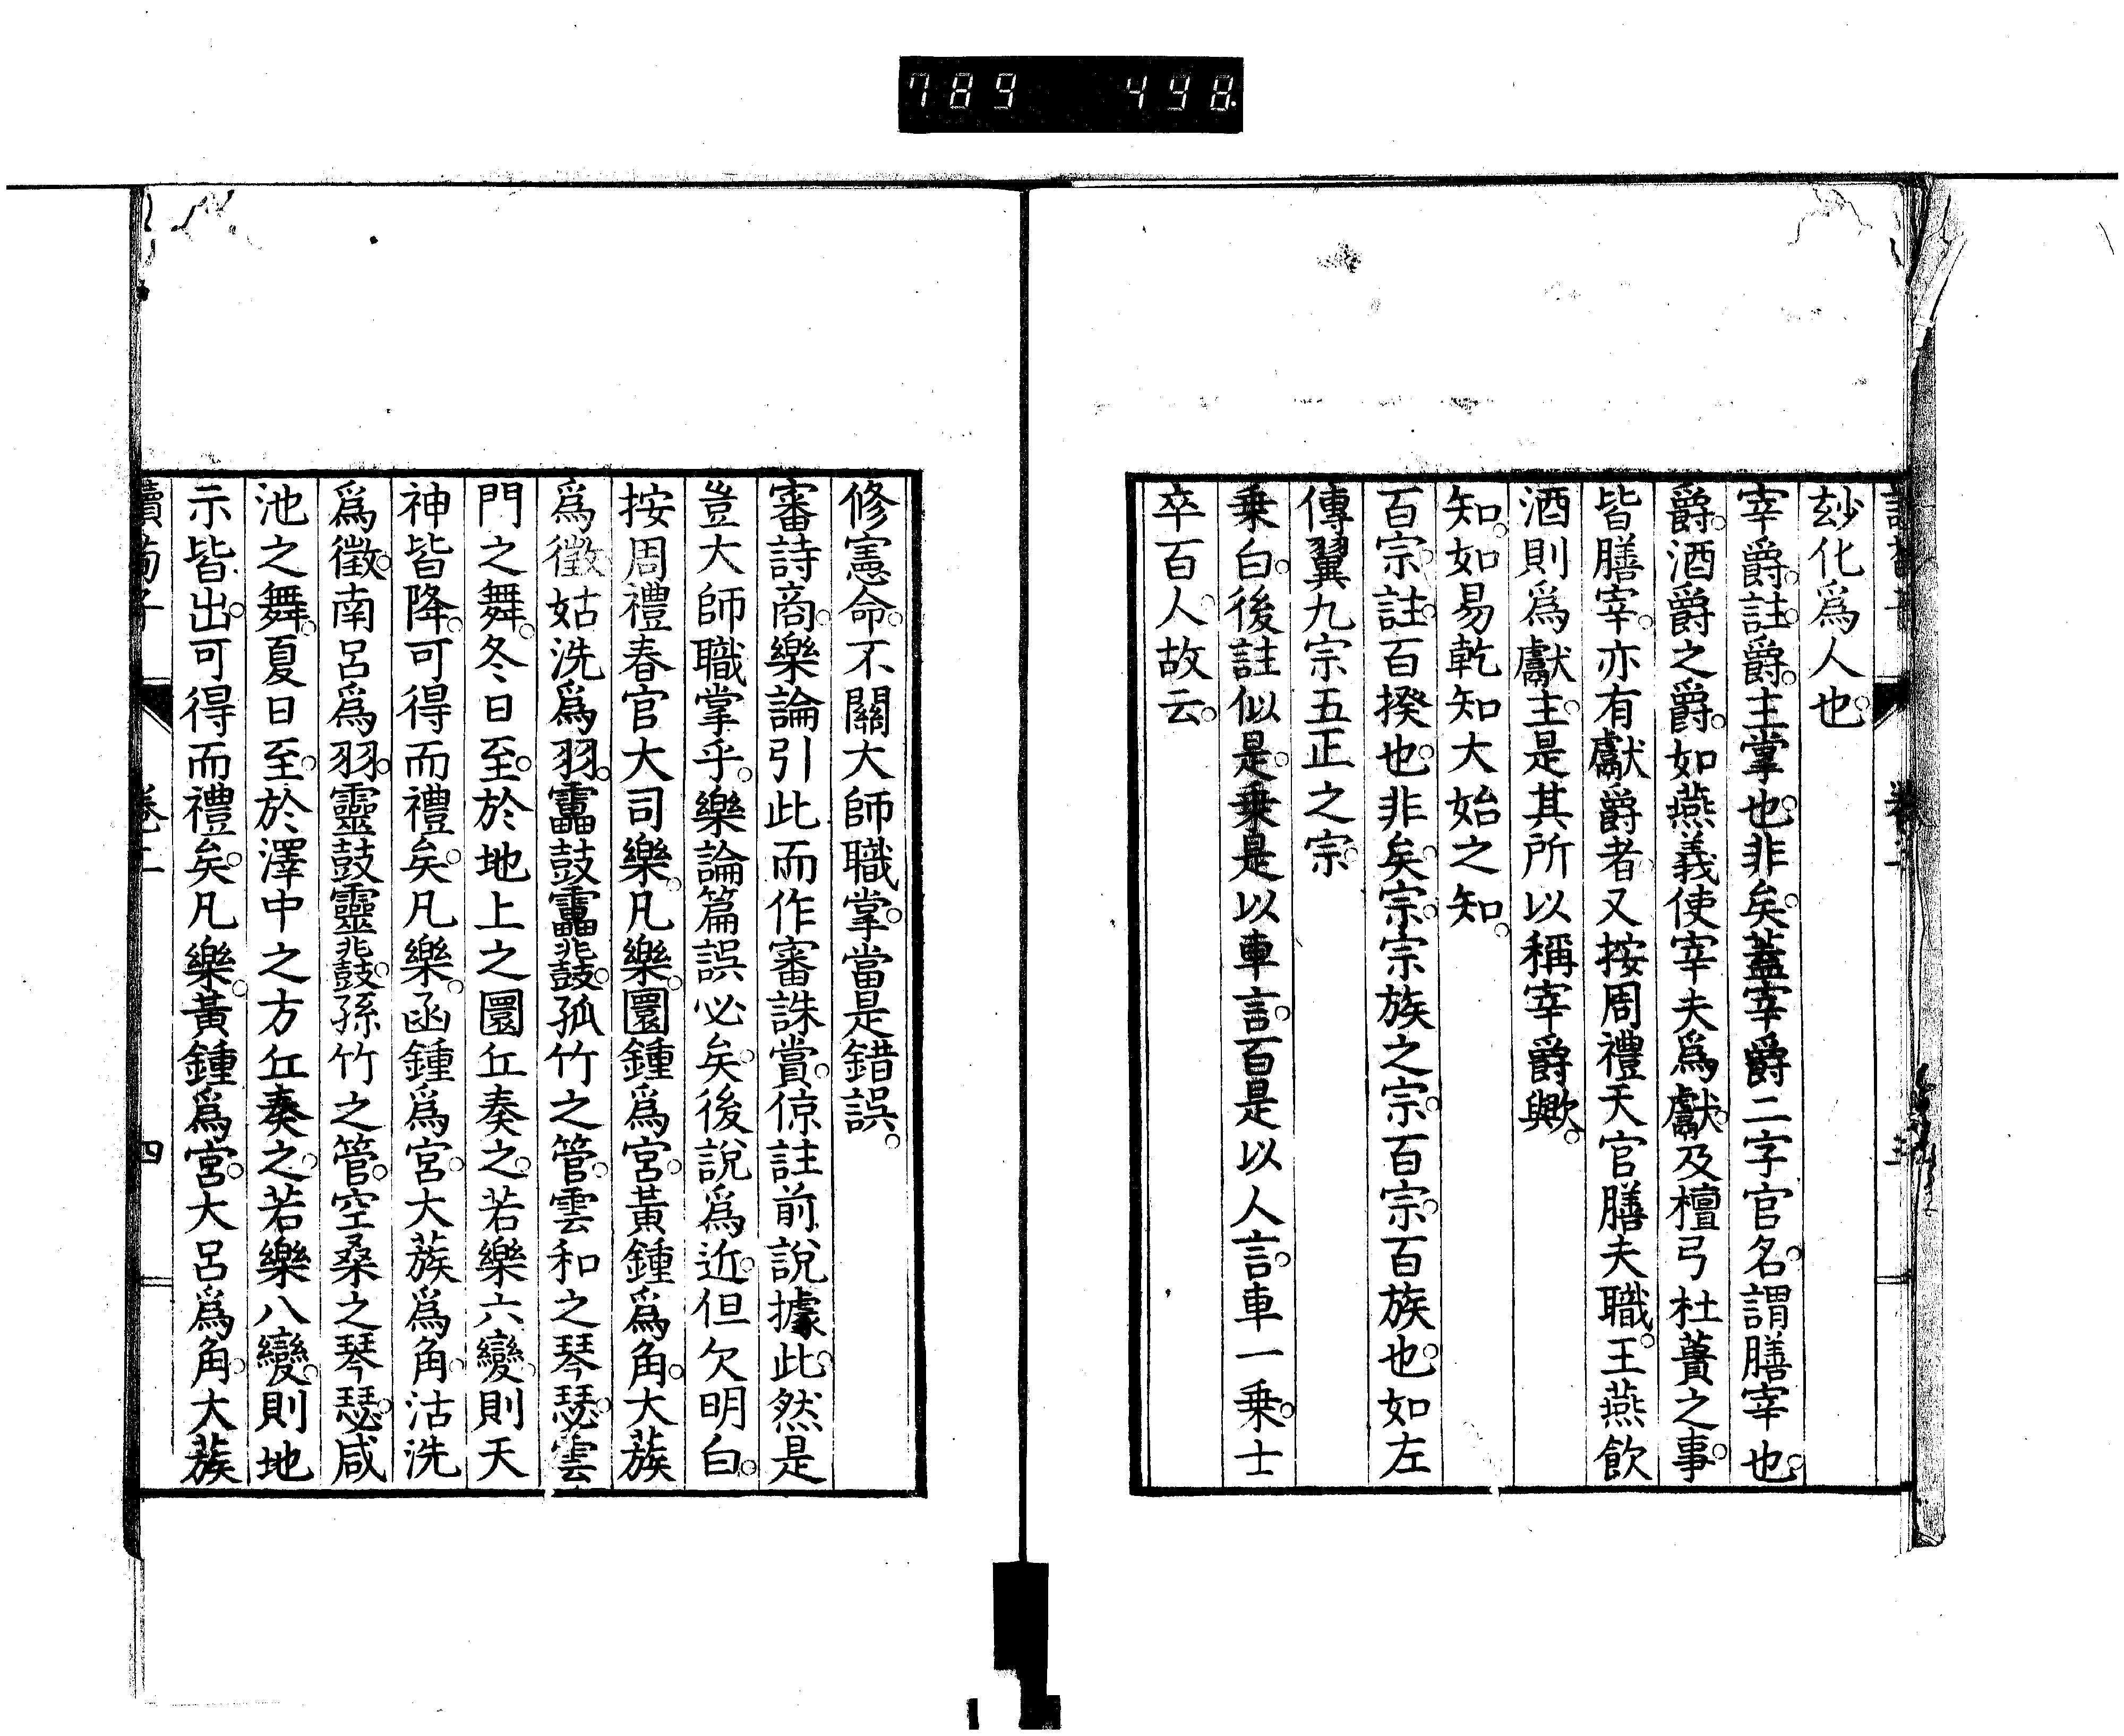 789 498
玅化爲人也。
宰爵。註。爵。主掌也。非矣。蓋宰爵二字官名。謂膳宰也。
爵。酒爵之爵。如燕義使宰夫爲獻。及檀弓杜蕢之事。
皆膳宰。亦有獻爵者。又按周禮天官膳夫職。王燕飮
酒則爲獻主。是其所以稱宰爵歟。
知。如易乾知大始之知。
百宗。註。百揆也。非矣。宗。宗族之宗。百宗。百族也。如左
傳翼九宗五正之宗。
乗白。後註似是。乗是以車言。百是以人言。車一乗。士
卒百人。故云。
修憲命。不關大師職掌。當是錯誤。
審詩商。樂論引此而作審誅賞。倞註前說據此。然是
豈大師職掌乎。樂論篇誤必矣。後說爲近。但欠明白。
按周禮春官大司樂。凡樂。圜鍾爲宮。黃鍾爲角。大蔟
爲徵。姑洗爲羽。靁鼓靁鼗。孤竹之管。雲和之琴瑟。雲
門之舞。冬日至。於地上之圜丘奏之。若樂六變。則天
神皆降。可得而禮矣。凡樂。函鍾爲宮。大蔟爲角。沽洗
爲徵。南呂爲羽。靈鼓靈鼗。孫竹之管。空桑之琴瑟。咸
池之舞。夏日至。於澤中之方丘奏之。若樂八變。則地
示皆出。可得而禮矣。凡樂。黃鍾爲宮。大呂爲角。大蔟
讀荀子 卷二 四